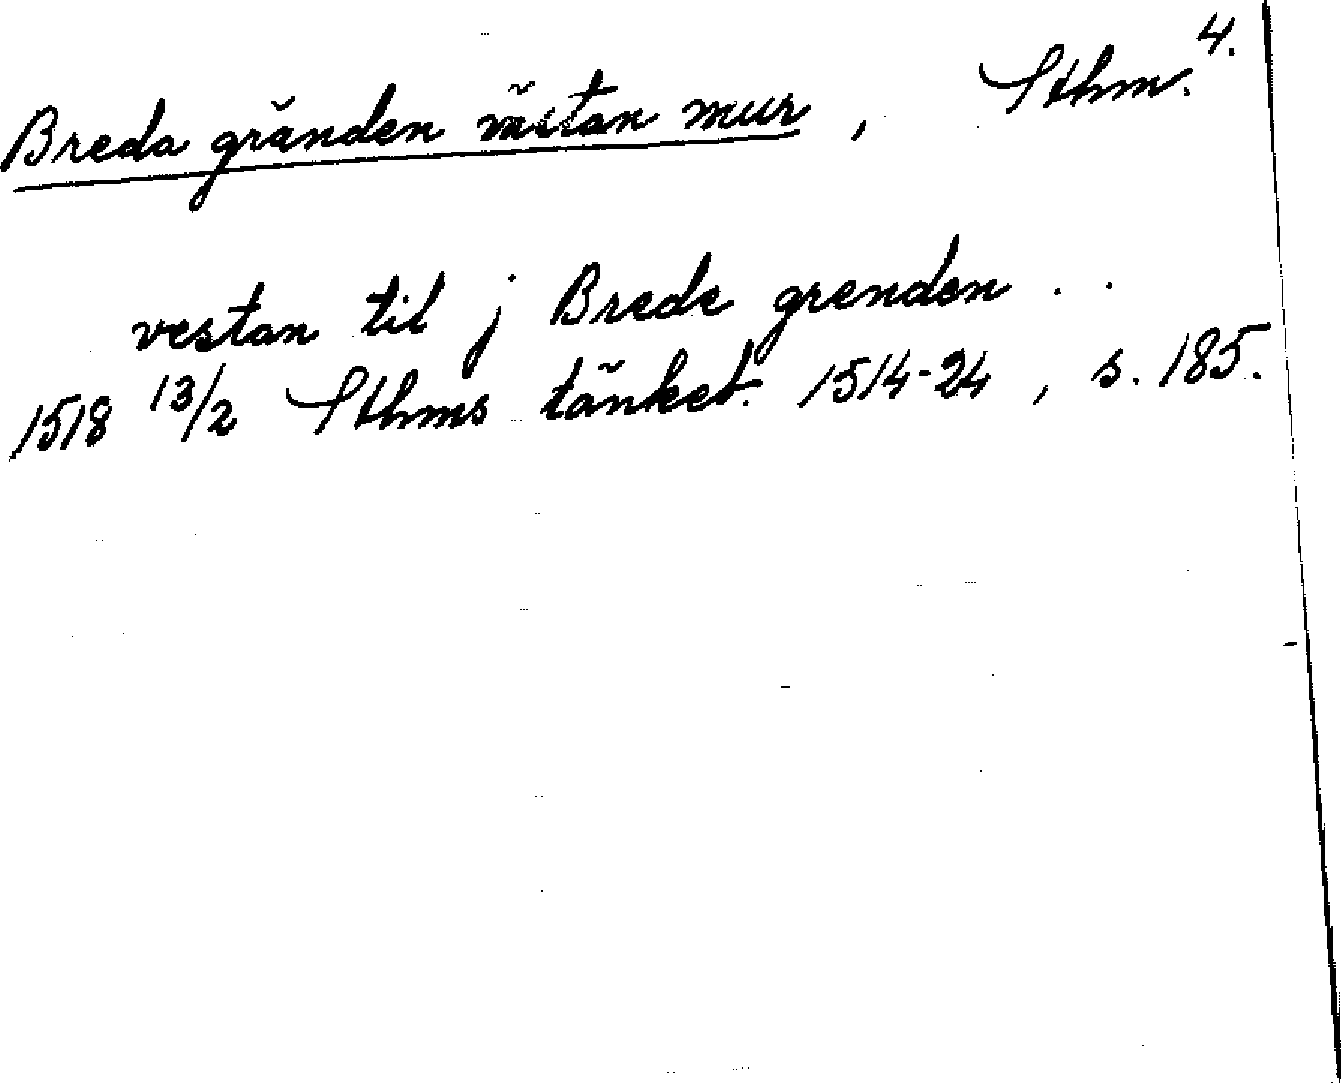 4.
Breda gränden västan mur, Sthm.
vestan til j Brede grenden . .
1518 13/2 Sthms tänkeb. 1514-24, s. 185.